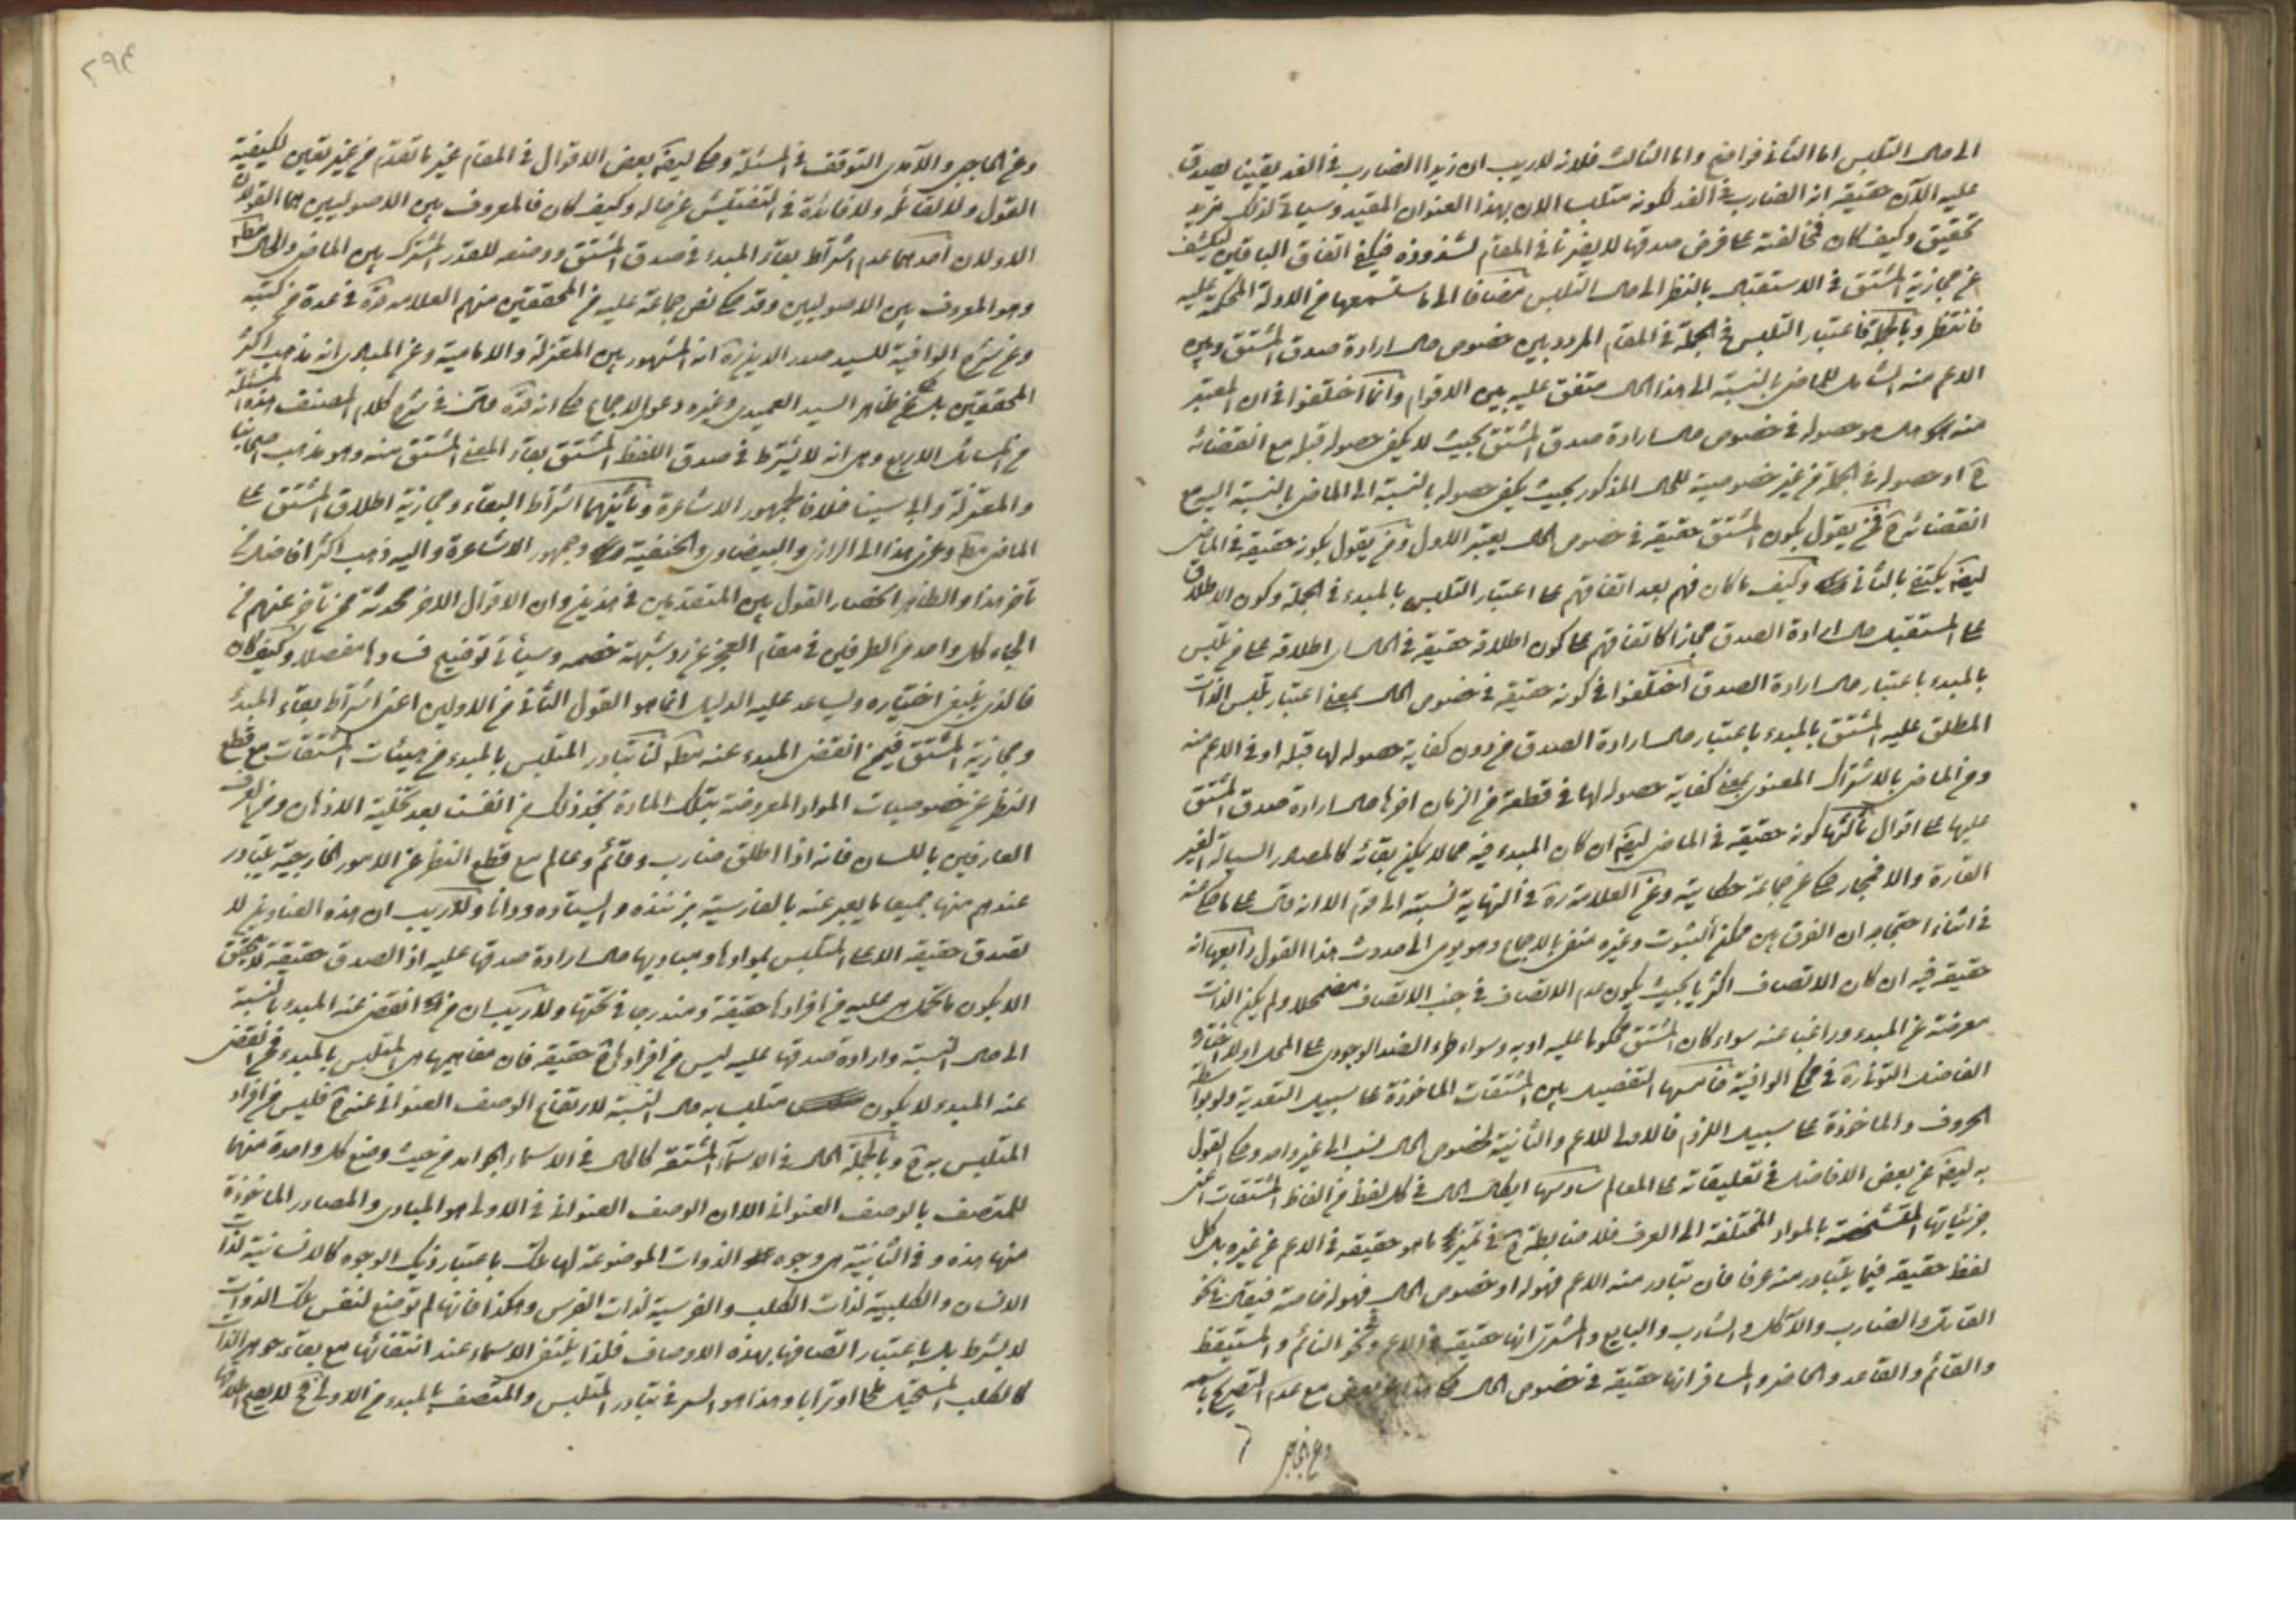 الى حال التلبس اما الثانى فواضح واما الثالث فلانه لا ريب ان زيدا الضارب فى الغد يقينا يصدق
عليه الآن حقيقة انه الضارب فى الغد لكونه متلبسا الان بهذا العنوان المقيد وسياتى لذلك مزيد
تحقيق وكيف كان فمخالفته على فرض صدقها لا يضرنا فى المقام لشذوذه فيكفى اتفاق الباقين ليكشف
عن مجازية المشتق فى الاستقبال بالنظر الى حال التلبس مضافا الى ما ستسمعها من الادلة المحكمة عليه
فانتظر وبالجملة فاعتبار التلبس فى الجملة فى المقام المردد بين خصوص حال ارادة صدق المشتق وبين
الاعم منه الشامل للماضى بالنسبة الى هذا الحال متفق عليه بين الاقوام وانما اختلفوا فى ان المعتبر
منه هل هو حصوله فى خصوص حال ارادة صدق المشتق بحيث لا يكفى حصوله قبله مع انقضائه
ح او حصوله فى الجملة من غير خصوصية للحال المذكور بحيث يكفى حصوله بالنسبة الى الماضى بالنسبة اليه مع
انقضائه ح فمن يقول بكون المشتق حقيقة فى خصوص الحال يعتبر الاول ومن يقول بكونه حقيقة فى الماضى
ايضا يكتفى بالثانى وكيف ما كان فهم بعد اتفاقهم على اعتبار التلبس بالمبدء فى الجملة وكون الاطلاق
على المستقبل حال ارادة الصدق مجازا كاتفاقهم على كون اطلاقه حقيقة فى الحال اى اطلاقه على من تلبس
بالمبدء باعتبار حال ارادة الصدق اختلفوا فى كونه حقيقة فى خصوص الحال بمعنى اعتبار تلبس الذات
المطلق عليه المشتق بالمبدء باعتبار حال ارادة الصدق من دون كفاية حصوله لها قبله او فى الاعم منه
ومن الماضى بالاشتراك المعنوى بمعنى كفاية حصوله لها فى قطعة من الزمان اخرها حال ارادة صدق المشتق
عليها على اقوال ثالثها كونه حقيقة فى الماضى ايضا ان كان المبدء فيه مما لا يمكن بقائه كالمصادر السيالة الغير
القارة والا فمجاز حكى عن جماعة حكايته وعن العلامة ره فى النهاية نسبته الى قوم الا انه قال على ما حكى عنه
فى اثناء احتجاجه ان الفرق بين ممكن الثبوت وغيره منفى بالاجماع وهو يومى الى حدوث هذا القول رابعها انه
حقيقة فيه ان كان الاتصاف اكثريا بحيث يكون عدم الاتصاف فى جنب الاتصاف مضمحلا ولم يكن الذات
معرضة عن المبدء وراغبا عنه سواء كان المشتق محكوما عليه او به وسواء طرء الضد الوجودى على المحل اولا اختاره
الفاضل التونى ره فى حكى الوافية خامسها التفصيل بين المشتقات الماخوذة على سبيل التعدية ولو بواسطة
الحروف والماخوذة على سبيل اللزوم فالاولى للاعم والثانية لخصوص الحال نسب الى غير واحد وحكى القول
به ايضا عن بعض الافاضل فى تعليقاته على المعالم سادسها ايكال الحال فى كل لفظ من الفاظ المشتقات اعنى
جزئياتها المتشخصة بالمواد المختلفة الى العرف فلا ضابطة ح فى تميز ما هو حقيقة فى الاعم عن غيره بل كل
لفظ حقيقة فيما يتبادر منه عرفا فان تبادر منه الاعم فهو له او خصوص الحال فهو له خاصة فيقال نحو
القاتل والضارب والآكل والشارب والبايع والمشترى انها حقيقة فى الاعم ونحو النائم والمستيقظ
والقائم والقاعد والحاضر والمسافر انها حقيقة فى خصوص الحال حكى هذا عن بعض مع عدم التصريح باسمه
وعن الحاجبى
٢٩٤
وعن الحاجبى والآمدى التوقف فى المسئلة وحكى ايضا بعض الاقوال فى المقام غير ما تقدم من غير تعيين لكيفية
القول ولا لقائله ولا فائدة فى التفتيش عن حاله وكيف كان فالمعروف بين الاصوليين هما القولان
الاولان احدهما عدم اشتراط بقاء المبدء فى صدق المشتق ووضعه للقدر المشترك بين الماضى والحال مطلقا
وهو المعروف بين الاصوليين وقد حكى نص جماعة عليه من المحققين منهم العلامة قده فى عدة من كتبه
وعن شرح الوافية للسيد صدر الدين ره انه المشهور بين المعتزلة والامامية وعن المبادى انه مذهب اكثر
المحققين بل عن ظاهر السيد العميدى وغيره دعوى الاجماع كما انه قده قال فى شرح كلام المصنف هذه المسئلة
من المسائل الاربع وهى انه لا يشترط فى صدق اللفظ المشتق بقاء المعنى المشتق منه وهو مذهب اصحابنا
والمعتزلة وابى سينا خلافا لجمهور الاشاعرة وثانيهما اشتراط البقاء ومجازية اطلاق المشتق على
الماضى مطلقا وعزى هذا الى الرازى والبيضاوى والحنفية وجمهور الاشاعرة واليه ذهب اكثر افاضل من
تاخر هذا والظاهر انحصار القول بين المتقدمين فى هذين وان الاقوال الاخر محدثة ممن تاخر عنهم من
الجاء كل واحد من الطرفين فى مقام العجز عن رد شبهة خصمه وسيأتى توضيح فسادها مفصلا وكيف كان
فالذى ينبغى اختياره ويساعد عليه الدليل انما هو القول الثانى من الاولين اعنى اشتراط بقاء المبدء
ومجازية المشتق فيمن انقضى المبدء عنه مطلقا لنا تبادر المتلبس بالمبدء من هيئات المشتقات مع قطع
النظر عن خصوصيات المواد المعروضة بتلك المادة نجد ذلك من انفسنا بعد تخلية الاذهان ومن العرف
العارفين باللسان فانه اذا اطلق ضارب وقائم وعالم مع قطع النظر عن الامور الخارجية يتبادر
عندهم منها جميعا ما يعبر عنه بالفارسية بزننده و ايستاده ودانا ولا ريب ان هذه العناوين لا
تصدق حقيقة الا على المتلبس بموادها ومباديها حال ارادة صدقها عليه اذ الصدق حقيقة لا يتحقق
الا بكون ما تحمل هى عليه من افرادها حقيقة ومندرجا فى تحتها ولا ريب ان من انقضى عنه المبدء بالنسبة
الى حال النسبة وارادة صدقها عليه ليس من افرادها ح حقيقة فان مفاهيمها هى المتلبس بالمبدء فمن انقضى
عنه المبدء لا يكون متلبسا به حال النسبة لارتفاع الوصف العنوانى عنه ح فليس من افراد
المتلبس به ح وبالجملة الحال فى الاسماء المشتقة كالحال فى الاسماء الجوامد من حيث وضع كل واحدة منها
للمتصف بالوصف العنوانى الا ان الوصف العنوانى فى الاولى هو المبادى والمصادر الماخوذة
منها هذه و فى الثانية هى وجوه الذوات الموضوعة لها تلك باعتبار ذيك الوجوه كالانسانية لذات
الانسان والكلبية لذات الكلب والفرسية لذات الفرس وهكذا فانها لم توضع لنفس تلك الذوات
لا بشرط بل باعتبار اتصافها بهذه الاوصاف فلذا ينتفى الاسماء عند انتفائها مع بقاء جوهر الذات
كالكلب المستحيل ملحا او ترابا وهذا هو السر فى تبادر المتلبس والمتصف بالمبدء من الاولى فح لا يصح اطلاقها